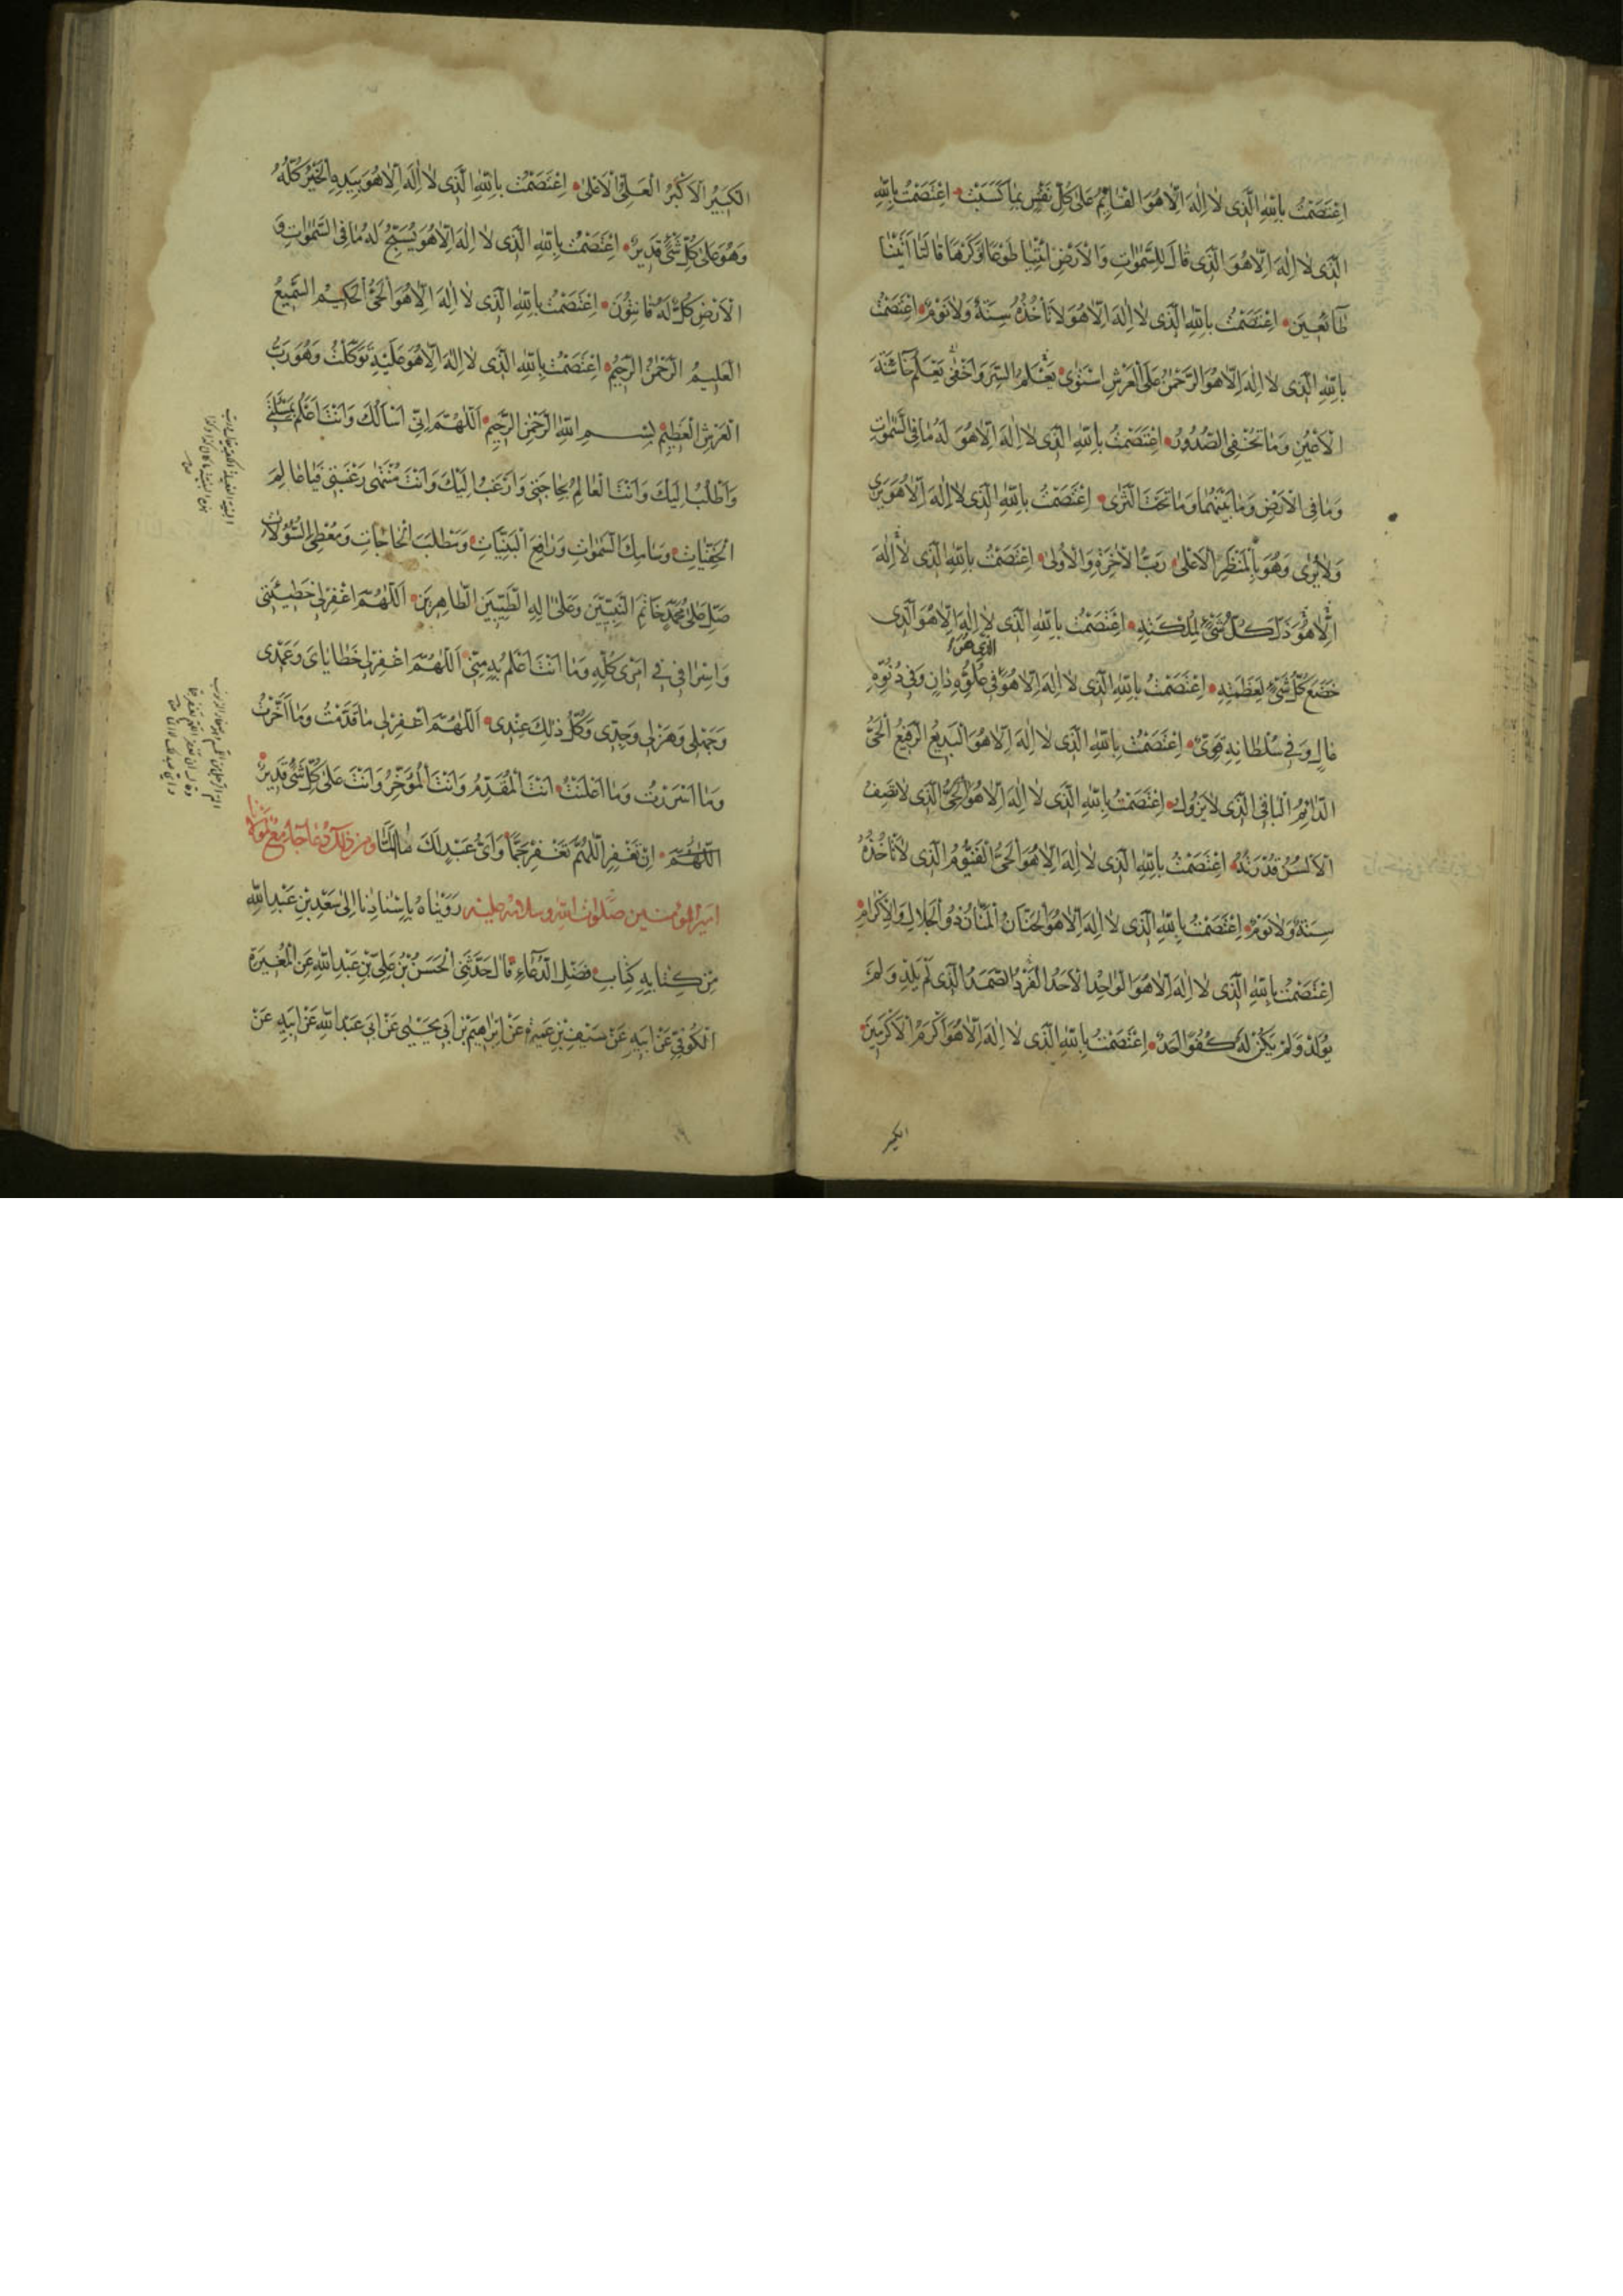 اِعْتَصَمْتُ بِاللّٰهِ الَّذى لٰا اِلٰهَ اِلّٰا هُوَ الْقٰائِمُ عَلىٰ كُلِّ نَفْسٍ بِمٰا كَسَبَتْ اِعْتَصَمْتُ بِاللّٰهِ
الَّذى لٰا اِلٰهَ اِلّٰا هُوَ الَّذى قٰالَ لِلسَّمٰوٰاتِ وَالْاَرْضِ ائْتِيٰا طَوْعًا اَوْ كَرْهًا قٰالَتٰا اَتَيْنٰا
طٰائِعينَ اِعْتَصَمْتُ بِاللّٰهِ الَّذى لٰا اِلٰهَ اِلّٰا هُوَ لٰا تَأْخُذُهُ سِنَةٌ وَلٰا نَوْمٌ اِعْتَصَمْتُ
بِاللّٰهِ الَّذى لٰا اِلٰهَ اِلّٰا هُوَ الرَّحْمٰنُ عَلَى الْعَرْشِ اسْتَوىٰ يَعْلَمُ السِّرَّ وَاَخْفىٰ يَعْلَمُ خٰائِنَةَ
الْاَعْيُنِ وَمٰا تُخْفِى الصُّدُورُ اِعْتَصَمْتُ بِاللّٰهِ الَّذى لٰا اِلٰهَ اِلّٰا هُوَ لَهُ مٰا فِى السَّمٰوٰاتِ
وَمٰا فِى الْاَرْضِ وَمٰا بَيْنَهُمٰا وَمٰا تَحْتَ الثَّرىٰ اِعْتَصَمْتُ بِاللّٰهِ الَّذى لٰا اِلٰهَ اِلّٰا هُوَ يَرىٰ
وَلٰا يُرىٰ وَهُوَ بِالْمَنْظَرِ الْاَعْلىٰ رَبُّ الْاٰخِرَةِ وَالْاُولىٰ اِعْتَصَمْتُ بِاللّٰهِ الَّذى لٰا اِلٰهَ
اِلّٰا هُوَ ذَلَّ كُلُّ شَىْءٍ لِمُلْكِهِ اِعْتَصَمْتُ بِاللّٰهِ الَّذى لٰا اِلٰهَ اِلّٰا هُوَ الَّذى
الذى هو
خَضَعَ كُلُّ شَىْءٍ لِعَظَمَتِهِ اِعْتَصَمْتُ بِاللّٰهِ الَّذى لٰا اِلٰهَ اِلّٰا هُوَ فى عُلُوِّهِ دٰانٍ وَفى دُنُوِّهِ
عٰالٍ وَفى سُلْطٰانِهِ قَوِىٌّ اِعْتَصَمْتُ بِاللّٰهِ الَّذى لٰا اِلٰهَ اِلّٰا هُوَ الْبَديعُ الرَّفيعُ الْحَىُّ
الدّٰائِمُ الْبٰاقِى الَّذى لٰا يَزُولُ اِعْتَصَمْتُ بِاللّٰهِ الَّذى لٰا اِلٰهَ اِلّٰا هُوَ الْحَىُّ الَّذى لٰا تَصِفُ
الْاَلْسُنُ قُدْرَتَهُ اِعْتَصَمْتُ بِاللّٰهِ الَّذى لٰا اِلٰهَ اِلّٰا هُوَ الْحَىُّ الْقَيُّومُ الَّذى لٰا تَأْخُذُهُ
سِنَةٌ وَلٰا نَوْمٌ اِعْتَصَمْتُ بِاللّٰهِ الَّذى لٰا اِلٰهَ اِلّٰا هُوَ الْحَنّٰانُ الْمَنّٰانُ ذُو الْجَلٰالِ وَالْاِكْرٰامِ
اِعْتَصَمْتُ بِاللّٰهِ الَّذى لٰا اِلٰهَ اِلّٰا هُوَ الْوٰاحِدُ الْاَحَدُ الْفَرْدُ الصَّمَدُ الَّذى لَمْ يَلِدْ وَلَمْ
يُولَدْ وَلَمْ يَكُنْ لَهُ كُفُوًا اَحَدٌ اِعْتَصَمْتُ بِاللّٰهِ الَّذى لٰا اِلٰهَ اِلّٰا هُوَ اَكْرَمُ الْاَكْرَمينَ
الكبير
الْكَبيرُ الْاَكْبَرُ الْعَلِىُّ الْاَعْلىٰ اِعْتَصَمْتُ بِاللّٰهِ الَّذى لٰا اِلٰهَ اِلّٰا هُوَ بِيَدِهِ الْخَيْرُ كُلُّهُ
وَهُوَ عَلىٰ كُلِّ شَىْءٍ قَديرٌ اِعْتَصَمْتُ بِاللّٰهِ الَّذى لٰا اِلٰهَ اِلّٰا هُوَ يُسَبِّحُ لَهُ مٰا فِى السَّمٰوٰاتِ وَ
الْاَرْضِ كُلٌّ لَهُ قٰانِتُونَ اِعْتَصَمْتُ بِاللّٰهِ الَّذى لٰا اِلٰهَ اِلّٰا هُوَ الْحَىُّ الْحَكيمُ السَّميعُ
الْعَليمُ الرَّحْمٰنُ الرَّحيمُ اِعْتَصَمْتُ بِاللّٰهِ الَّذى لٰا اِلٰهَ اِلّٰا هُوَ عَلَيْهِ تَوَكَّلْتُ وَهُوَ رَبُّ
الْعَرْشِ الْعَظيمِ بِسْمِ اللّٰهِ الرَّحْمٰنِ الرَّحيمِ اَللّٰهُمَّ اِنّى اَسْأَلُكَ وَاَنْتَ اَعْلَمُ بِمَسْئَلَتى
وَاَطْلُبُ اِلَيْكَ وَاَنْتَ الْعٰالِمُ بِحٰاجَتى وَاَرْغَبُ اِلَيْكَ وَاَنْتَ مُنْتَهىٰ رَغْبَتى فَيٰا عٰالِمَ
الْخَفِيّٰاتِ وَسٰامِكَ السَّمٰوٰاتِ وَدٰافِعَ الْبَلِيّٰاتِ وَمَطْلَبَ الْحٰاجٰاتِ وَمُعْطِىَ السُّؤُلٰاتِ
صَلِّ عَلىٰ مُحَمَّدٍ خٰاتَمِ النَّبِيّينَ وَعَلىٰ اٰلِهِ الطَّيِّبينَ الطّٰاهِرينَ اَللّٰهُمَّ اغْفِرْ لى خَطيئَتى
وَاِسْرٰافى فى اَمْرى كُلِّهِ وَمٰا اَنْتَ اَعْلَمُ بِهِ مِنّى اَللّٰهُمَّ اغْفِرْ لى خَطٰايٰاىَ وَعَمْدى
وَجَهْلى وَهَزْلى وَجِدّى وَكُلُّ ذٰلِكَ عِنْدى اَللّٰهُمَّ اغْفِرْ لى مٰا قَدَّمْتُ وَمٰا اَخَّرْتُ
وَمٰا اَسْرَرْتُ وَمٰا اَعْلَنْتُ اَنْتَ الْمُقَدِّمُ وَاَنْتَ الْمُؤَخِّرُ وَاَنْتَ عَلىٰ كُلِّ شَىْءٍ قَديرٌ
اَللّٰهُمَّ اِنْ تَغْفِرِ اللّٰهُمَّ تَغْفِرْ جَمًّا وَاَىُّ عَبْدٍ لَكَ لٰا اَلَمّٰا ومن ذلك دعاء جامع لمولانا
امير المؤمنين صلوات الله وسلامه عليه رَوَيْنٰاهُ بِاِسْنٰادِنٰا اِلىٰ سَعْدِ بْنِ عَبْدِ اللّٰهِ
مِنْ كِتٰابِهِ كِتٰابِ فَضْلِ الدُّعٰاءِ قٰالَ حَدَّثَنِى الْحَسَنُ بْنُ عَلِىِّ بْنِ عَبْدِ اللّٰهِ عَنِ الْمُغيرَةِ
الْكُوفِىِّ عَنْ اَبيهِ عَنْ سَيْفِ بْنِ عَميرَةَ عَنْ اِبْرٰاهيمَ بْنِ اَبى يَحْيىٰ عَنْ اَبى عَبْدِ اللّٰهِ عَنْ اَبيهِ عَنْ